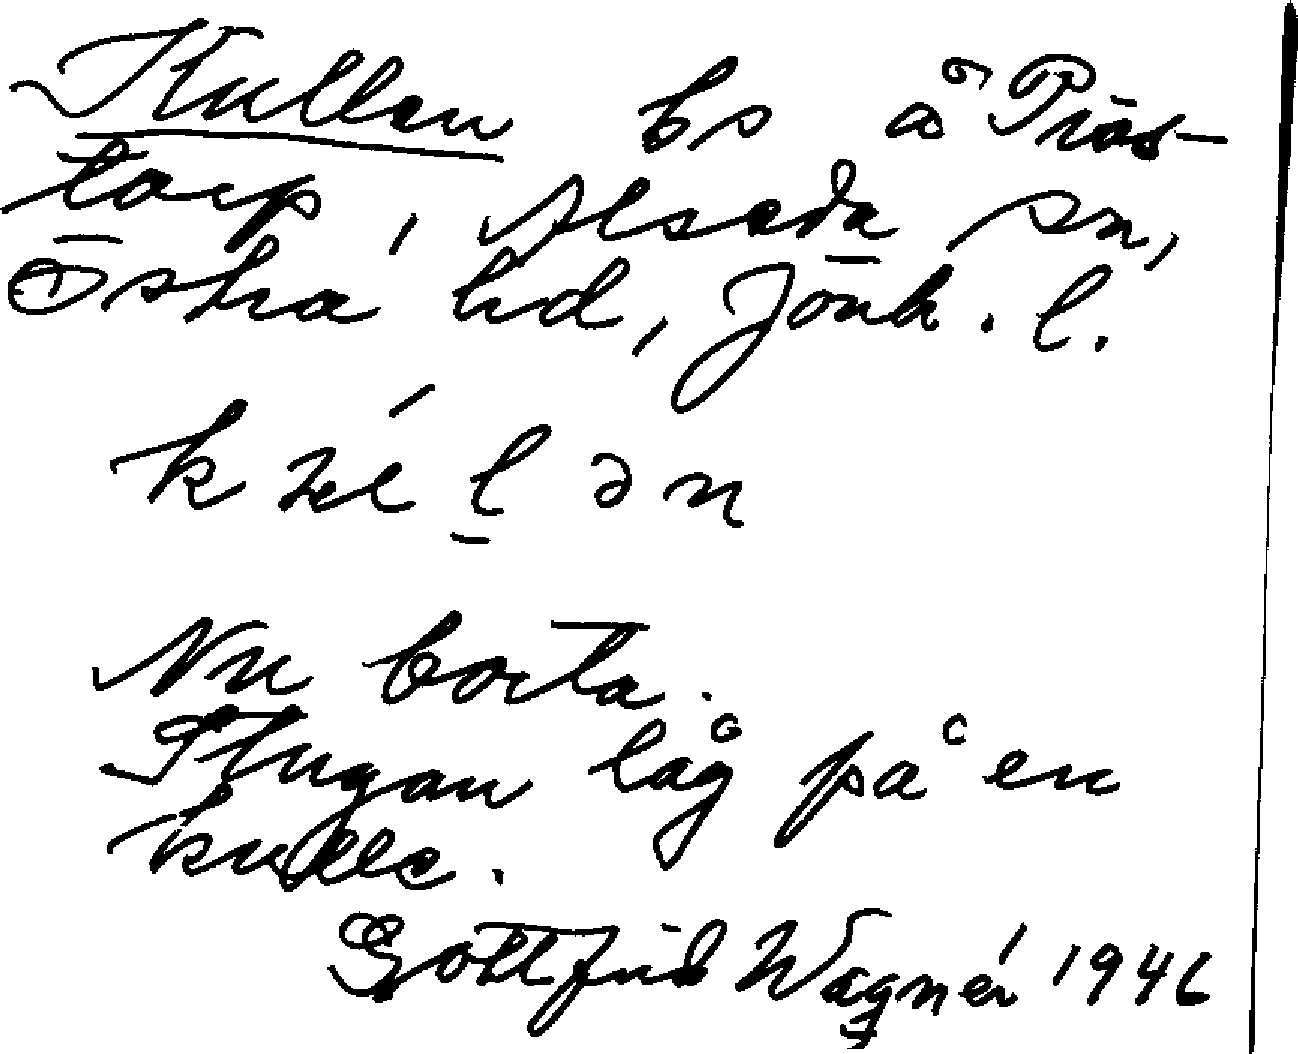 Kullen bs å Präs-
torp, Alseda sn,
Östra hd, Jönk. l.
Nu borta.
Stugan låg på en
kulle.
Gottfrid Wagnér 1946